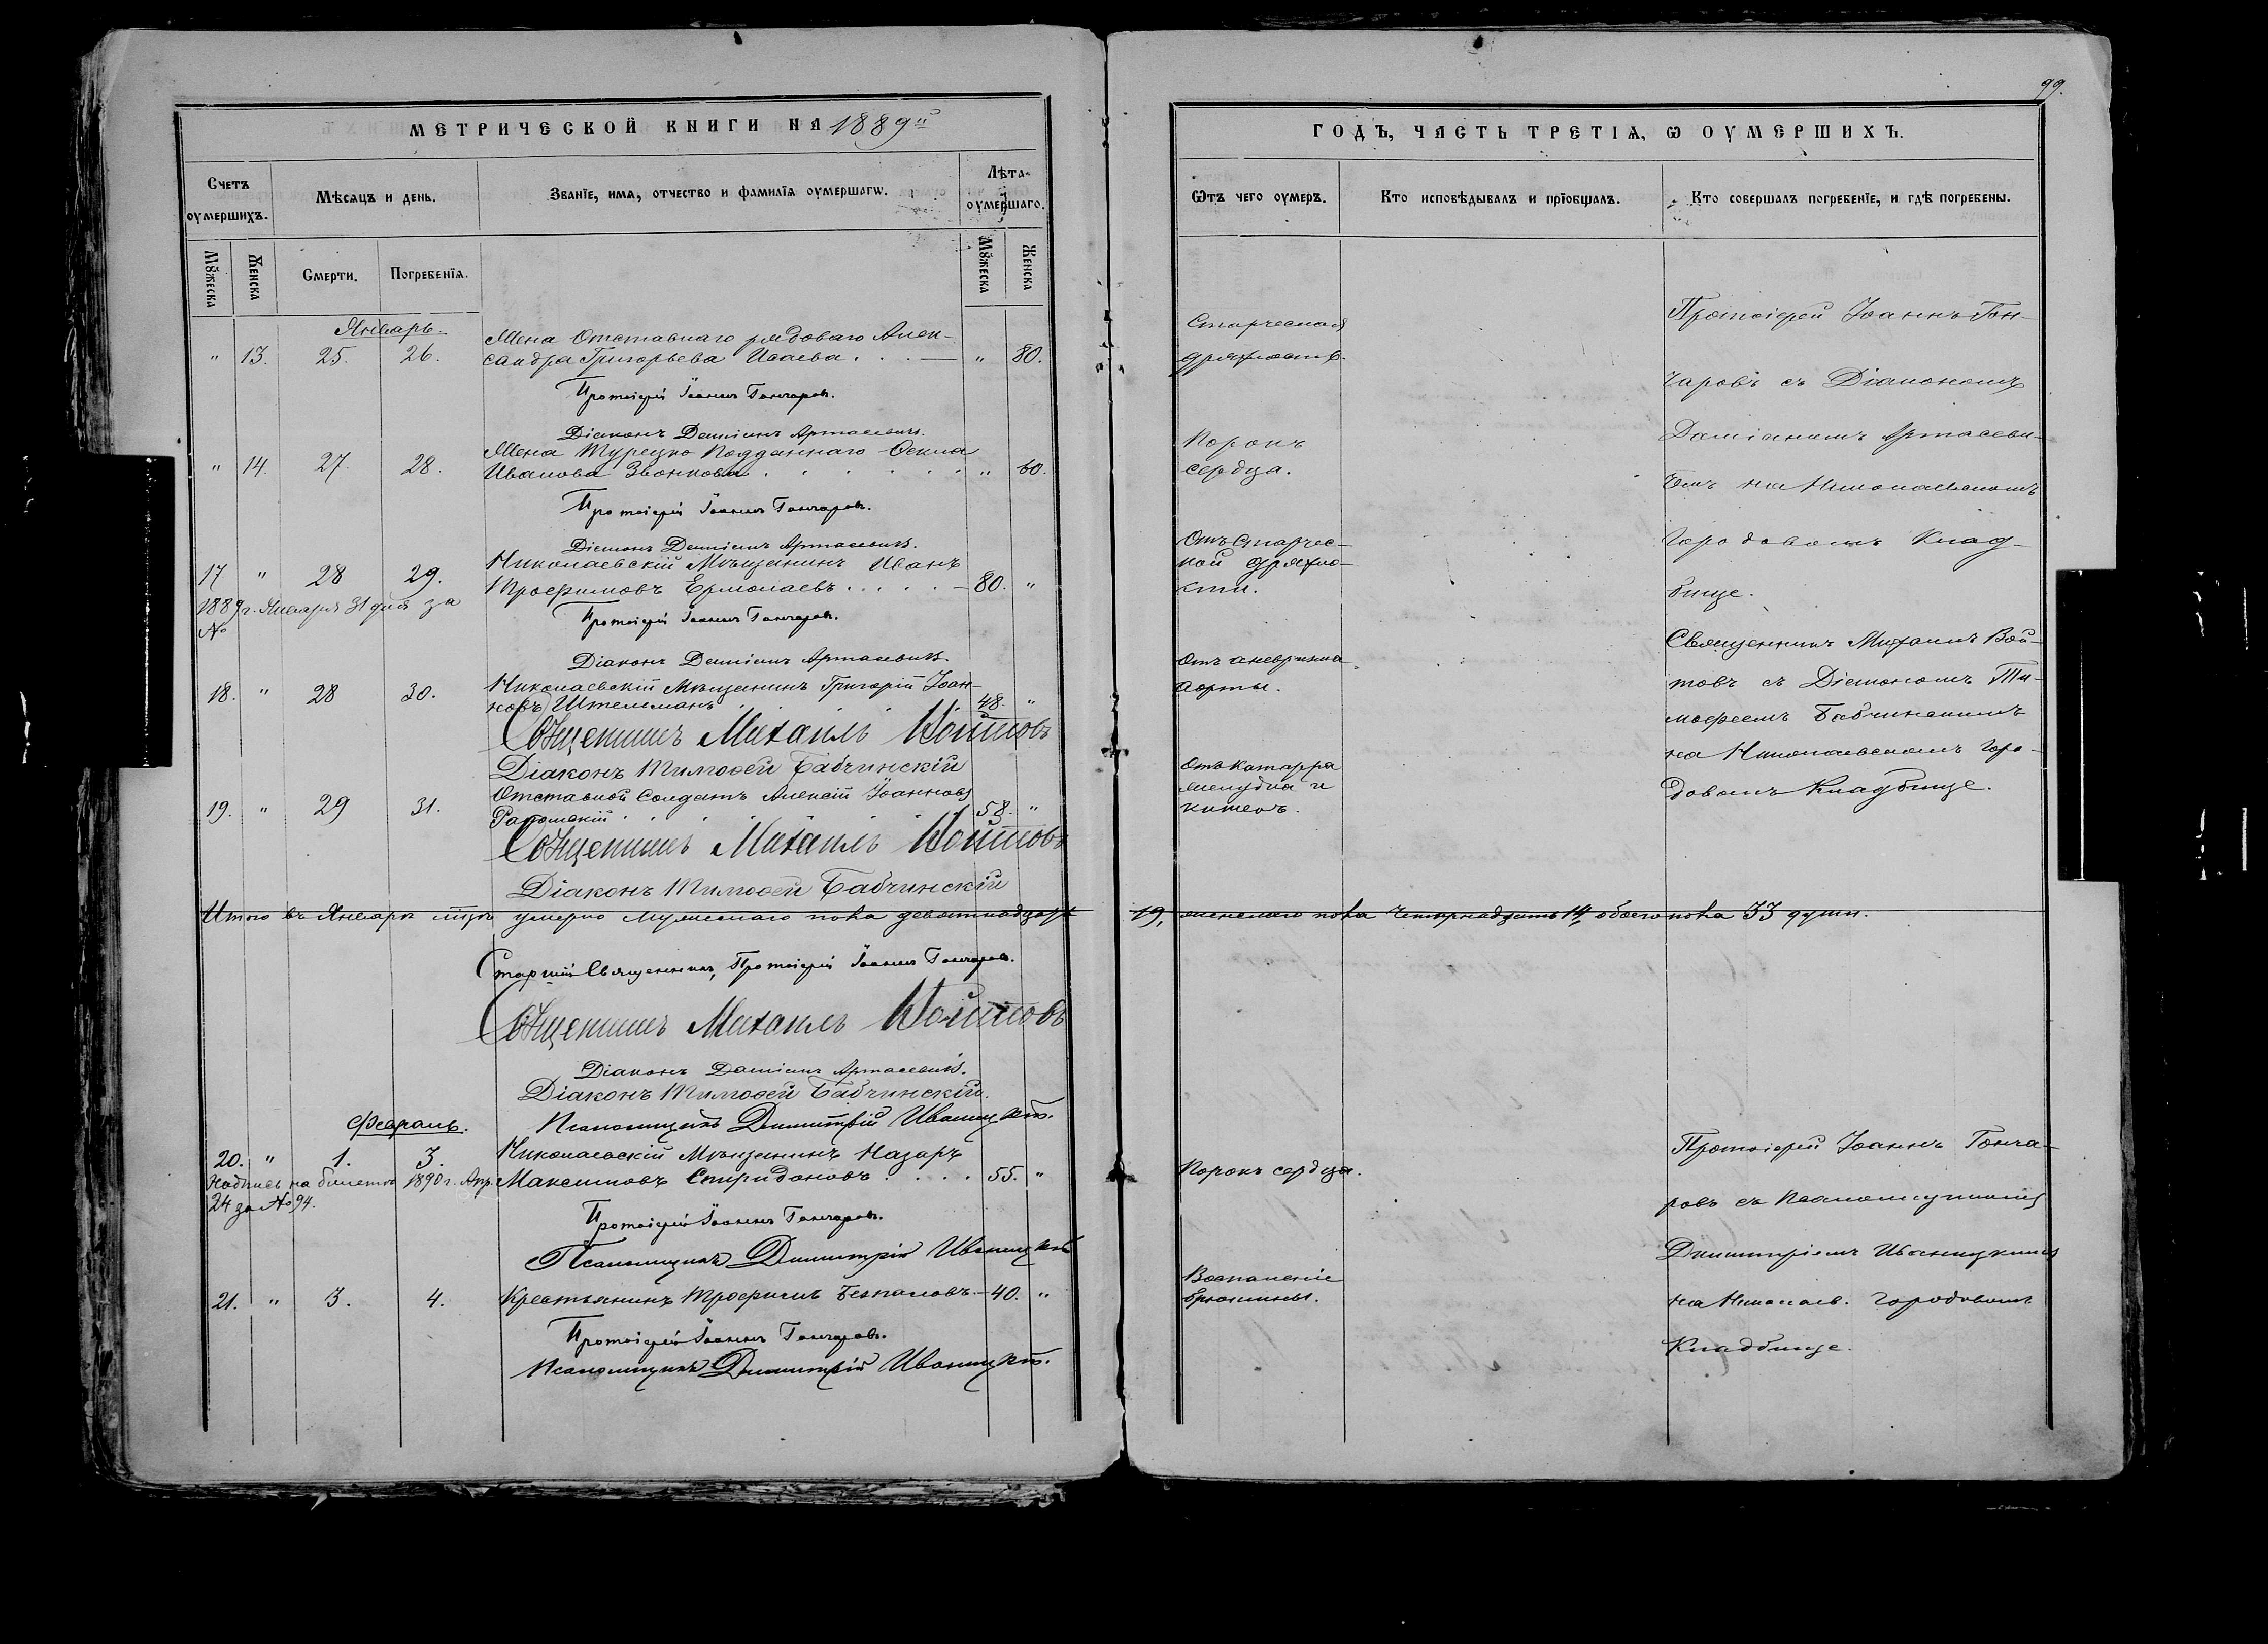 99.
МЕТРИЧЕСКОЙ КНИГИ НА 1889й
ГОДЪ, ЧАСТЬ ТРЕТІЯ, Ѡ ОУМЕРШИХЪ.
Счетъ оумершихъ.
Мѣсяцъ и день.
Званїе, имя, отчество и фамилїя оумершагѡ.
Лѣта оумершаго.
Мꙋжеска
Женска
Смерти.
Погребенїя.
Мꙋжеска
Женска
Ѡтъ чего оумеръ.
Кто исповѣдывалъ и прїобщалъ.
Кто совершалъ погребенїе, и гдѣ погребены.
Январь.
Жена Отставнаго рядоваго Алек-
" 13. 25. 26. сандра Григорьева Исаева . . . — " 80.
Протоіерей Іоаннъ Гончаровъ.
Діаконъ Даміанъ Артасевичъ.
Жена Турецко Подданнаго
" 14. 27. 28. Иванова Звонкова . . . . . " 60.
Протоіерей Іоаннъ Гончаровъ.
Діаконъ Даміанъ Артасевичъ.
Николаевскій Мѣщанинъ Иванъ
17 " 28 29. Трофимовъ Ермолаевъ . . . . — 80. "
1889 г. Января 31 дня за
№
Протоіерей Іоаннъ Гончаровъ.
Діаконъ Даміанъ Артасевичъ
Николаевскій Мѣщанинъ Григорій Іоан-
18. " 28 30. новъ Штельманъ . . . 48. "
Священникъ Михаилъ Войтовъ
Діаконъ Тимоѳей Бабчинскій
Отставной Солдатъ Алексій Іоанновъ
19. " 29 31. . . . . 58. "
Священникъ Михаилъ Войтовъ
Діаконъ Тимоѳей Бабчинскій
Итого въ Январѣ мцѣ умерло Мужескаго пола девятнадцать
Старшій Священникъ, Протоіерей Іоаннъ Гончаровъ.
Священникъ Михаилъ Войтовъ
Діаконъ Даміанъ Артасевичъ.
Діаконъ Тимоѳей Бабчинскій.
Псаломщикъ Димитрій Иваницкій.
Февраль.
Николаевскій Мѣщанинъ Назаръ
20. " 1. 3. Максимовъ Спиридоновъ . . . . 55. "
Надпись на билетѣ 1890 г. Апр.
24 за № 94.
Протоіерей Іоаннъ Гончаровъ.
Псаломщикъ Димитрій Иваницкій
21. " 3. 4. Крестьянинъ Трофимъ Безпаловъ. — 40. "
Протоіерей Іоаннъ Гончаровъ.
Псаломщикъ Димитрій Иваницкій.
Старческая
дряхлость.
Порокъ
сердца.
Отъ старчес-
кой дряхло-
сти.
Отъ аневризма
аорты.
Отъ катарра
желудка и
кишекъ.
19, женскаго пола четырнадцать 14, обоего пола 33 души.
Порокъ сердца.
Воспаленіе
брюшины.
Протоіерей Іоаннъ Гон-
чаровъ съ Діакономъ
Даміаномъ Артасеви-
чемъ на Николаевскомъ
Городовомъ Клад-
бище.
Священникъ Михаилъ Вой-
товъ съ Діакономъ Ти-
мофеемъ Бабчинскимъ
на Николаевскомъ Горо-
довомъ Кладбище.
Протоіерей Іоаннъ Гонча-
ровъ съ Псаломщикомъ
Димитріемъ Иваницкимъ
на Николаев. Городовомъ
Кладбище.